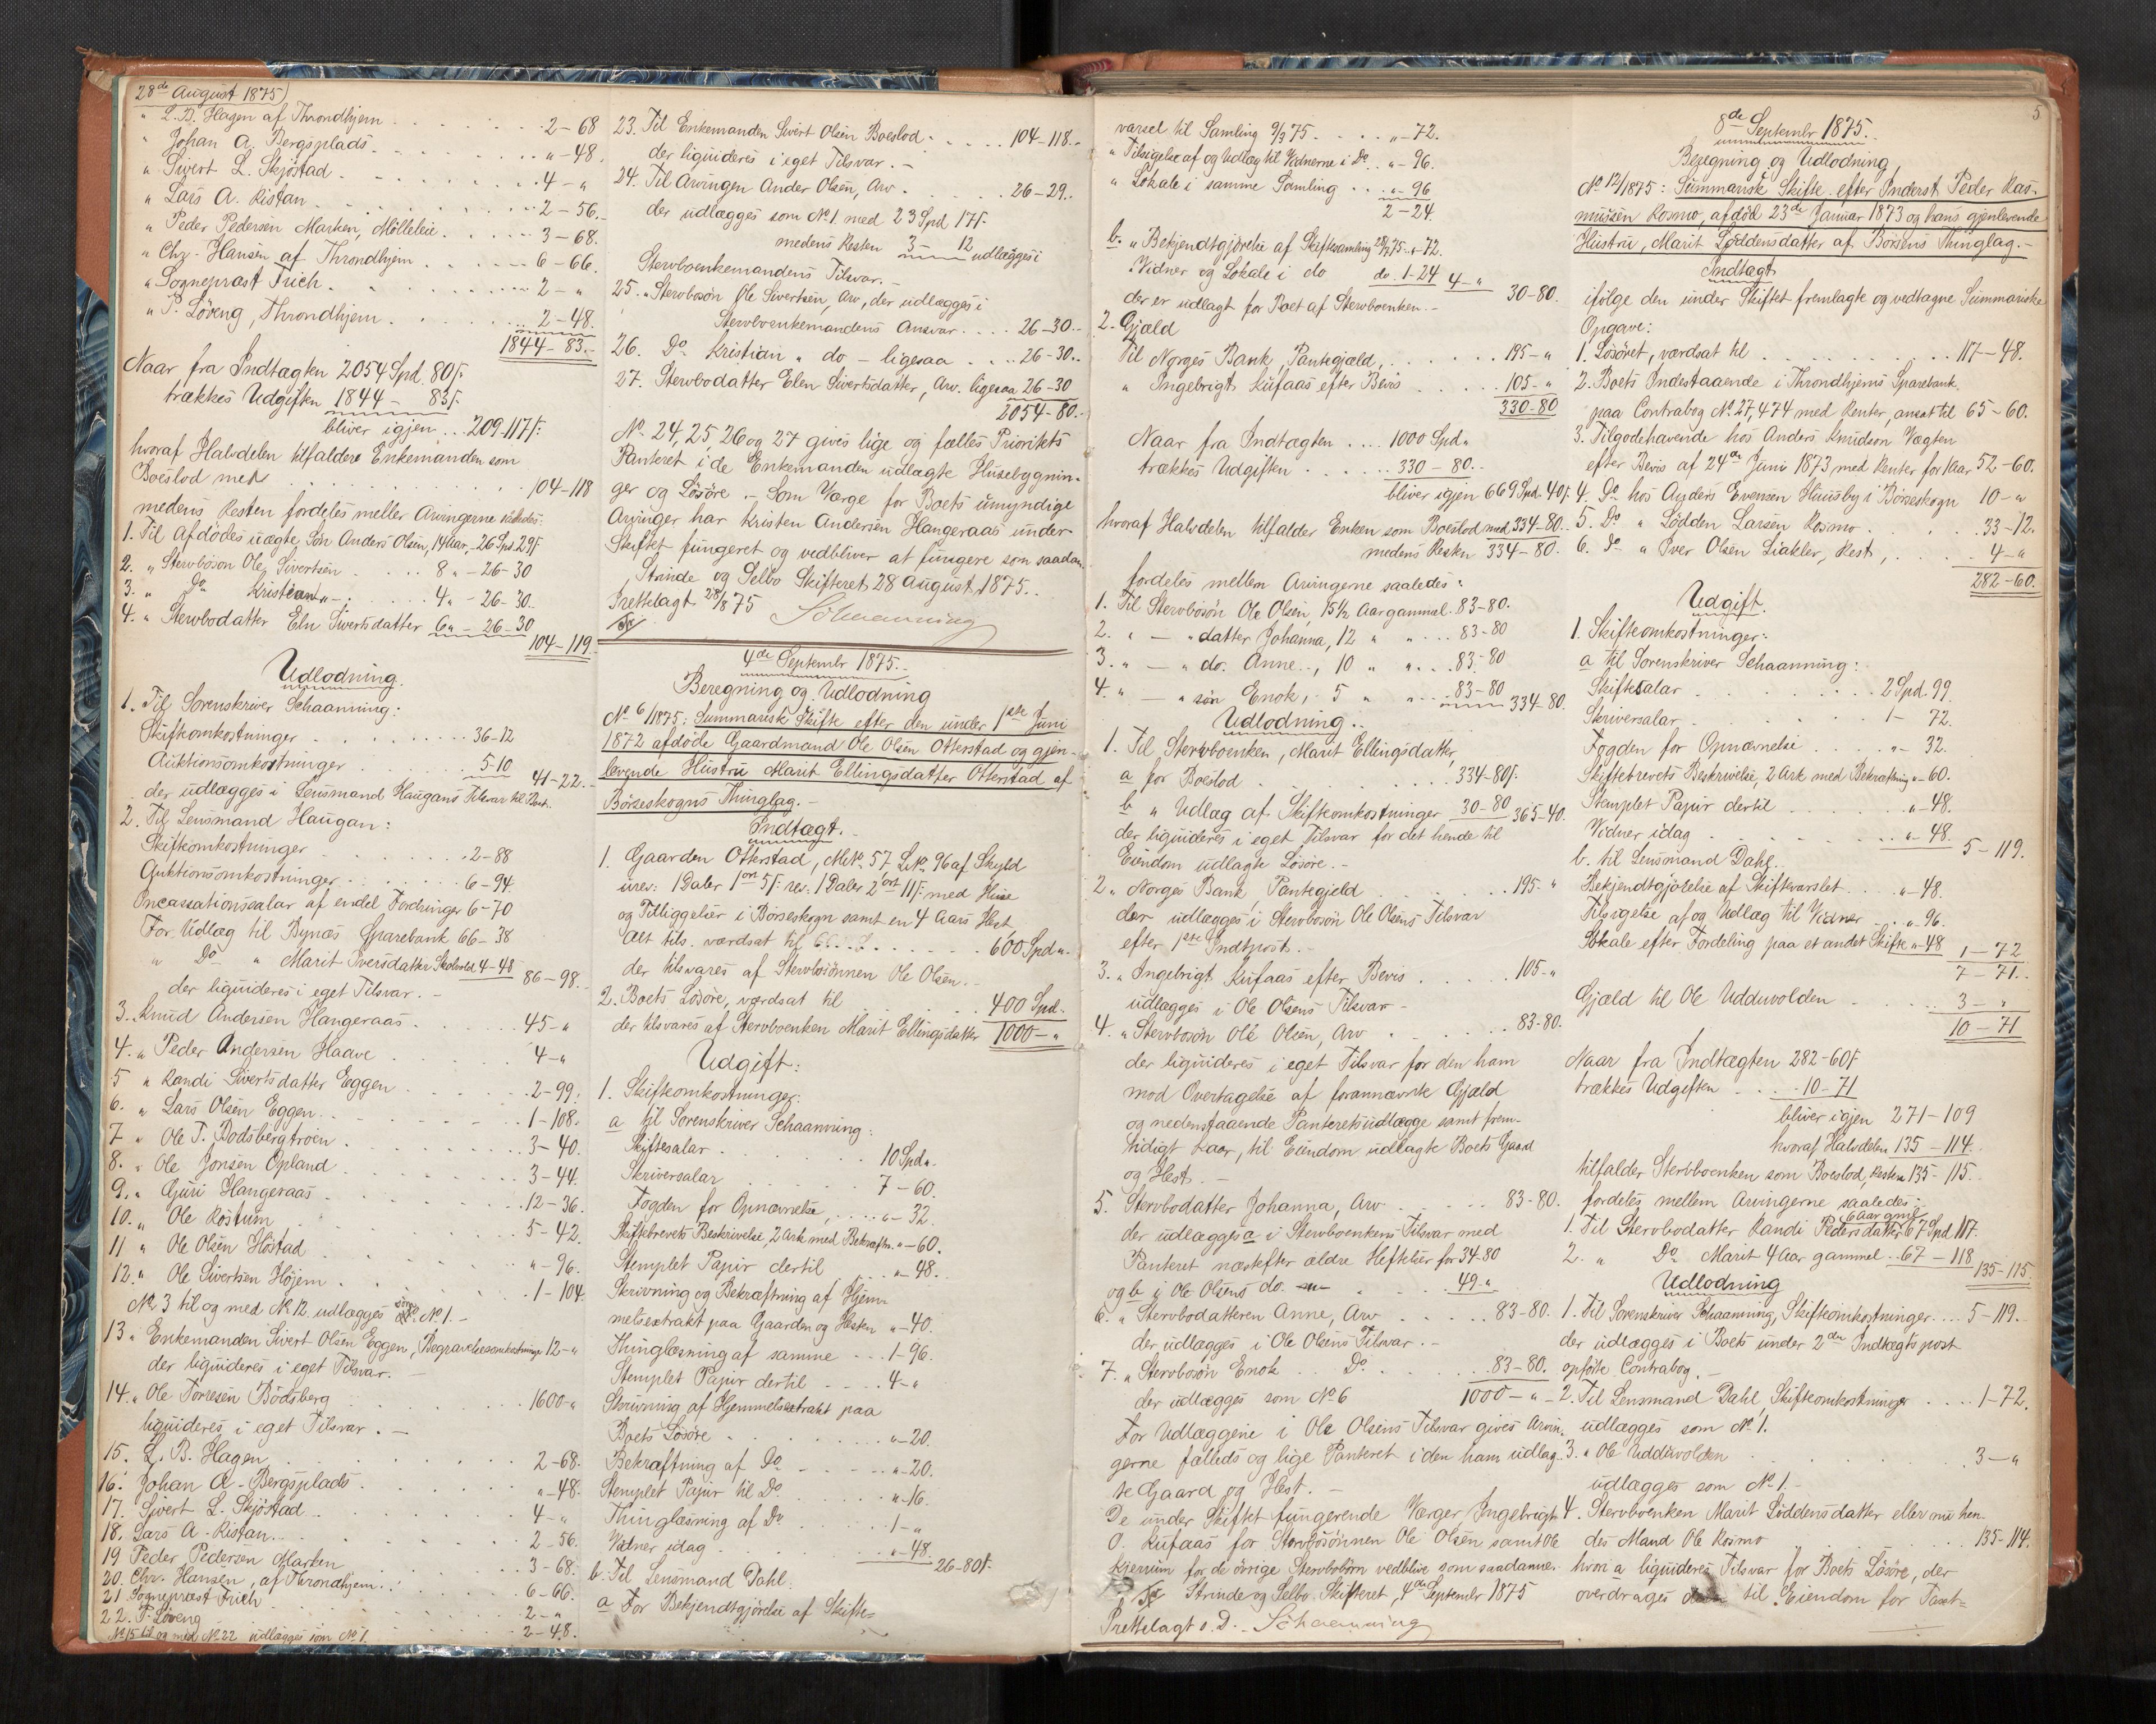 28de August 1875)
" L. B. Hagen af Throndhjem . . . 2-68
" Johan A. Bergsplads . . . "-48.
" Sivert L. Skjöstad . . . 4-"
" Lars A. Ristan . . . 2-56.
" Peder Pedersen Marken, Mölleleie . . . 3-68.
" Chr. Hansen af Throndhjem . . . 6-66.
" Sognepræst Frich . . . 2-"
" P. Löveng, Throndhjem . . . 2-48.
1844-83.
Naar fra Indtægten 2054 Spd. 80 f.
trækkes Udgiften 1844 - 83 f.
bliver igjen . . . 209-117 f:
hvoraf Halvdelen tilfalder Enkemanden som
Boeslod med . . . 104-118
medens Resten fordeles meller Arvingerne saaledes:
1. Til afdödes uægte Sön Anders Olsen, 14 Aar, - 26 Spd. 29 f
2. " Stervbosön Ole Sivertsen . . . 8 " - 26-30
3. " Do Kristian " - . 4 " - 26-30.
4. " Stervbodatter Eln Sivertsdatter 6 " - 26-30
104-119.
Udlodning.
1. Til Sorenskriver Schaanning:
Skifteomkostninger . . . 36-12
Auktionsomkostninger . . . 5-10
41-22.
der udlægges i Lensmand Haugans Tilsvar til Boet.
2. Til Lensmand Haugan:
Skifteomkostninger . . . 2-88
Auktionsomkostninger . . . 6-94.
Incassationssalar af endel Fordringer 6-70
For Udlæg til Bynæs Sparebank 66-38
" Do " Marit Iversdatter Skolested 4-48
86-98.
der liquideres i eget Tilsvar. -
3. Knud Andersen Hangeraas . . . 45-"
4. " Peder Andersen Haave . . . 4-"
5 " Randi Sivertsdatter Eggen . . . 2-99.
6. " Lars Olsen Eggen . . . 1-108.
7 " Ole T. Bodsbergtröen . . . 3-40.
8. " Ole Jonsen Opland . . . 3-44.
9. " Guri Hangeraas . . . 12-36.
10. " Ole Röstum . . . 5-42.
11 " Ole Olsen Höstad . . . "-96.
12. " Ole Sivertsen Höjem . . . 1-104.
No 3 til og med No 12 udlægges som No 1. -
13 " Enkemanden Sivert Olsen Eggen, Begravelsesomkostninger 12-"
der liquideres i eget Tilsvar.
14. " Ole Torresen Bödsberg . . . 1600-"
liquideres i eget Tilsvar. -
15. L. B. Hagen . . . 2-68.
16. Johan A. Bergsplads . . . "-48.
17. Sivert L. Skjöstad . . . 4-"
18. Lars A. Ristan . . . 2-56.
19 Peder Pedersen Marken . . . 3-68.
20. Chr. Hansen, af Throndhjem . . . 6-66.
21 Sognepræst Frich . . . 2-"
22. P. Löveng . . . 2-48.
No 15 til og med No 22 udlægges som No 1.
23. Til Enkemanden Sivert Olsen Boeslod . . . 104-118.
der liquideres i eget Tilsvar. -
24. Til Arvingen Ander Olsen, Arv . . . 26-29.
der udlægges som No 1 med 23 Spd 17 f.
medens Resten 3 - 12 udlægges i
Stervboenkemandens Tilsvar. -
25. " Stervbosön Ole Sivertsen, Arv, der udlægges i
Stervboenkemandens Ansvar . . . 26-30.
26. Do Kristian " do - ligesaa . . . 26-30.
27. Stervbodatter Elen Sivertsdatter, Arv. ligesaa 26-30
2054-80.
No 24, 25 26 og 27 gives lige og fælles Prioritets
Panteret i de Enkemanden udlagte Husebygnin-
ger og Lösöre. - Som Værge for Boets umyndige
Arvinger har Kristen Andersen Hangeraas under
Skiftet fungeret og vedbliver at fungere som saadan.
Strinde og Selbo Skifteret 28 August 1875.
Prettelagt 28/8 75
Schaanning
4de Septembr 1875.
Beregning og Udlodning
No 6/1875: Summarisk Skifte efter den under 1ste Juni
1872 afdöde Gaardmand Ole Olsen Otterstad og gjen-
levende Hustru Marit Ellingsdatter Otterstad af
Börseskogns Thinglag. -
Indtægt.
1. Gaarden Otterstad, M.No. 57 L.No. 96 af Skyld
urev: 1 Daler 1 ort 5 f: rev: 1 Daler 2 ort 11 f: med Huse
og Tilliggelser i Börseskogn samt en 4 Aars Hest,
alt tils. værdsat til . . . 600 Spd ".
der tilsvares af Stervbosönnen Ole Olsen. -
2. Boets Lösöre, værdsat til . . . 400 Spd.
der tilsvares af Stervboenken Marit Ellingsdatter 1000-"
Udgift:
1. Skifteomkostninger:
a til Sorenskriver Schaanning:
Skiftesalar . . . 10 Spd ".
Skriversalar . . . 7-60.
Fogden for Opnævnelse, . . . "-32.
Skiftebrevets Beskrivelse, 2 Ark med Bekræftn. "-60.
Stemplet Papir dertil . . . "-48.
Skrivning og Bekræftning af Hjem-
melsextrakt paa Gaarden og Hesten "-40.
Thinglæsning af samme . . . 1-96.
Stemplet Papir dertil . . . 4-"
Skrivning af Hjemmelsextrakt paa
Boets Lösöre . . . "-20.
Bekræftning af Do . . . "-20.
Stemplet Papir til Do . . . "-16.
Thinglæsning af Do . . . 1-"
Vidner idag . . . "-48.
26-80 f.
b. Til Lensmand Dahl.
a For Bekjendtgjörelse af Skifte=
varsel til Samling 9/3 75 . . . "-72.
" Tilsigelse af og Udlæg til Vidnerne i Do . . "-96.
" Lokale i samme Samling . . . "-96
2-24.
b. " Bekjendtgjörelse af Skiftesamling 28/7 75. "-72.
" Vidner og Lokale i do do. 1-24 4-"
30-80.
der er udlagt for Boet af Stervboenken. -
2. Gjæld
Til Norges Bank, Pantegjæld, . . . 195-"
" Ingebrigt Kufaas efter Bevis . . . 105-"
330-80
Naar fra Indtægten . . . 1000 Spd "
trækkes Udgiften . . . 330-80.
bliver igjen 669 Spd. 40 f.
hvoraf Halvdelen tilfalder Enken som Boeslod med 334-80.
medens Resten 334-80.
fordeles mellem Arvingerne saaledes:
1. Til Stervbosön Ole Olsen, 15 1/2 Aar gammel 83-80.
2. " - " datter Johanna, 12 " " . . . 83-80
3. " - " do. Anne -, 10 " " . . . 83-80
4. " - " sön Enok, 5 " " . . . 83-80
334-80.
Udlodning.
1. Til Stervboenken, Marit Ellingsdatter,
a for Boeslod . . . 334-80 f.
b " Udlag af Skifteomkostninger 30-80
365-40.
der liquideres i eget Tilsvar for det hende til
Eiendom udlagte Lösöre. -
2 " Norges Bank, Pantegjæld . . . 195-"
der udlægges i Stervbosön Ole Olsens Tilsvar
efter 1ste Indtpost. -
3. " Ingebrigt Kufaas efter Bevis . . . 105-"
udlægges i Ole Olsens Tilsvar -
4. " Stervbosön Ole Olsen, Arv . . . 83-80.
der liquideres i eget Tilsvar for den ham
mod Overtagelse af forannævnte Gjæld
og nedenstaaende Panteretsudlægge samt frem-
tidigt Kaar, til Eiendom udlagte Boets Gaard
og Hest. -
5. Stervbodatter Johanna, Arv . . . 83-80.
der udlægges a i Stervboenkens Tilsvar med
Panteret næstefter ældre Heftelser for 34-80
og b i Ole Olsens do. . . . 49-"
6. " Stervbodatteren Anne, Arv . . . 83-80.
der udlægges i Ole Olsens Tilsvar. -
7. " Stervbosön Enok . . Do . . . 83-80.
der udlægges som No 6 1000-"
For Udlæggene i Ole Olsens Tilsvar gives Arvin-
gerne fælleds og lige Panteret i den ham udlag-
te Gaard og Hest. -
De under Skiftet fungerende Værger Ingebrigt
O. Kufaas for Stervbosönnen Ole Olsen samt Ole
Kjerrum for de övrige Stervbobörn vedblive som saadanne.
Strinde og Selbo Skifteret, 4de Septembr 1875
Prettelagt s. D. Schaanning
5
8de Septembr 1875.
Beregning og Udlodning
No 12/1875: Summarisk Skifte efter Inderst Peder Ras-
mussen Rosmo, afdöd 23de Januar 1873 og hans gjenlevende
Hustru, Marit Löddensdatter af Börsens Thinglag. -
Indtægt
ifölge den under Skiftet fremlagte og vedtagne Summariske
Opgave:
1. Lösöret, værdsat til . . . 117-48.
2. Boets Indestaaende i Throndhjems Sparebank
paa Contrabog No 27,474 med Renter, ansat til 65-60.
3. Tilgodehavende hos Anders Knudson Vægten
efter Bevis af 24de Juni 1873 med Renter for 1 Aar 52-60.
4. Do hos Anders Evensen Huusby i Börseskogn 10-"
5. Do " Lödden Larsen Rosmo . . . 33-12.
6. Do " Iver Olsen Liakler, Rest, . . . 4-"
282-60.
Udgift.
1. Skifteomkostninger:
a til Sorenskriver Schaanning:
Skiftesalar . . . 2 Spd. 99.
Skriversalar . . . 1- 72.
Fogden for Opnævnelse . . . "- 32.
Skiftebrevets Beskrivelse, 2 Ark med Bekræftning "-60.
Stemplet Papir dertil . . . "-48.
Vidner idag . . . "-48.
5-119.
b. til Lensmand Dahl.
Bekjendtgjörelse af Skiftevarslet . . . "-48.
Tilsigelse af og Udlæg til Vidner . . . "-96.
Lokale efter Fordeling paa et andet Skifte "-48
1-72
7-71.
Gjæld til Ole Udduvolden . . . 3-"
10-71
Naar fra Indtægten 282-60 f
trækkes Udgiften . . . 10-71
bliver igjen 271-109
hvoraf Halvdelen 135-114.
tilfalder Stervboenken som Boeslod, Resten 135-115.
fordeles mellem Arvingerne saaledes:
1. Til Stervbodatter Randi Pedersdatter 6 Aar gml. 67 Spd. 117.
2. " Do Marit 4 Aar gammel . . 67-118
135-115.
Udlodning
1. Til Sorenskriver Schaanning, Skifteomkostninger . . . 5-119.
der udlægges i Boets under 2den Indtægtspost
opförte Contrabog. -
2. Til Lensmand Dahl, Skifteomkostninger . . . 1-72.
udlægges som No 1.
3. " Ole Udduvolden . . . 3-"
udlægges som No 1. -
4. Stervboenken Marit Löddensdatter eller nu hen-
des Mand Ole Rosmo . . . 135-114.
hvori a liquideres Tilsvar for Boets Lösöre, der
overdrages til Eiendom for Taxt=